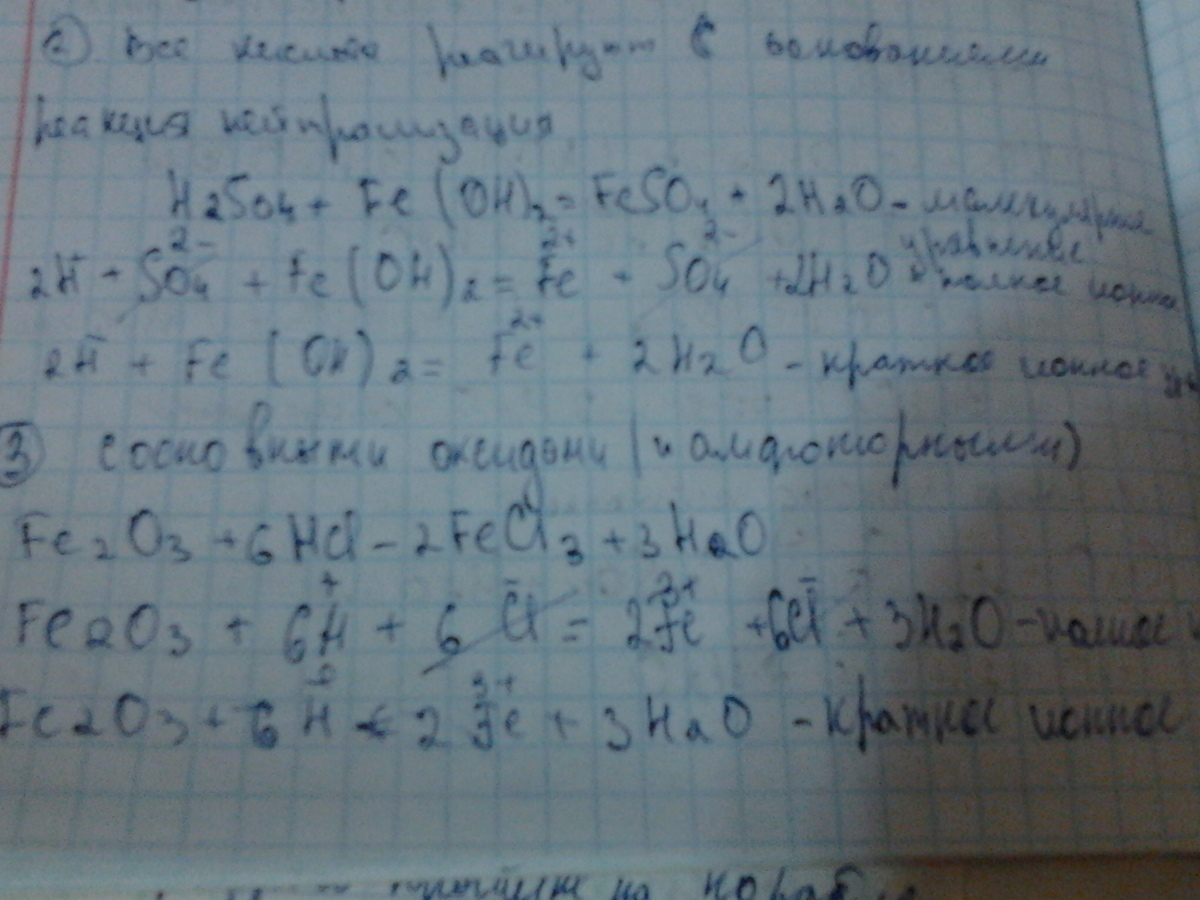 2) Все кислоты реагируют с основаниями
реакция нейтрализация
H2SO4 + Fe(OH)2 = FeSO4 + 2H2O - молекулярное уравнение
2H⁻ + SO4²⁻ + Fe(OH)2 = Fe²⁺ + SO4²⁻ + 2H2O - полное ионное
2H⁻ + Fe(OH)2 = Fe²⁺ + 2H2O - краткое ионное
3) с основными оксидами (и амфотерными)
Fe2O3 + 6HCl - 2FeCl3 + 3H2O
Fe2O3 + 6H⁺ + 6Cl⁻ = 2Fe³⁺ + 6Cl⁻ + 3H2O - полное
Fe2O3 + 6H⁺ = 2Fe³⁺ + 3H2O - краткое ионное